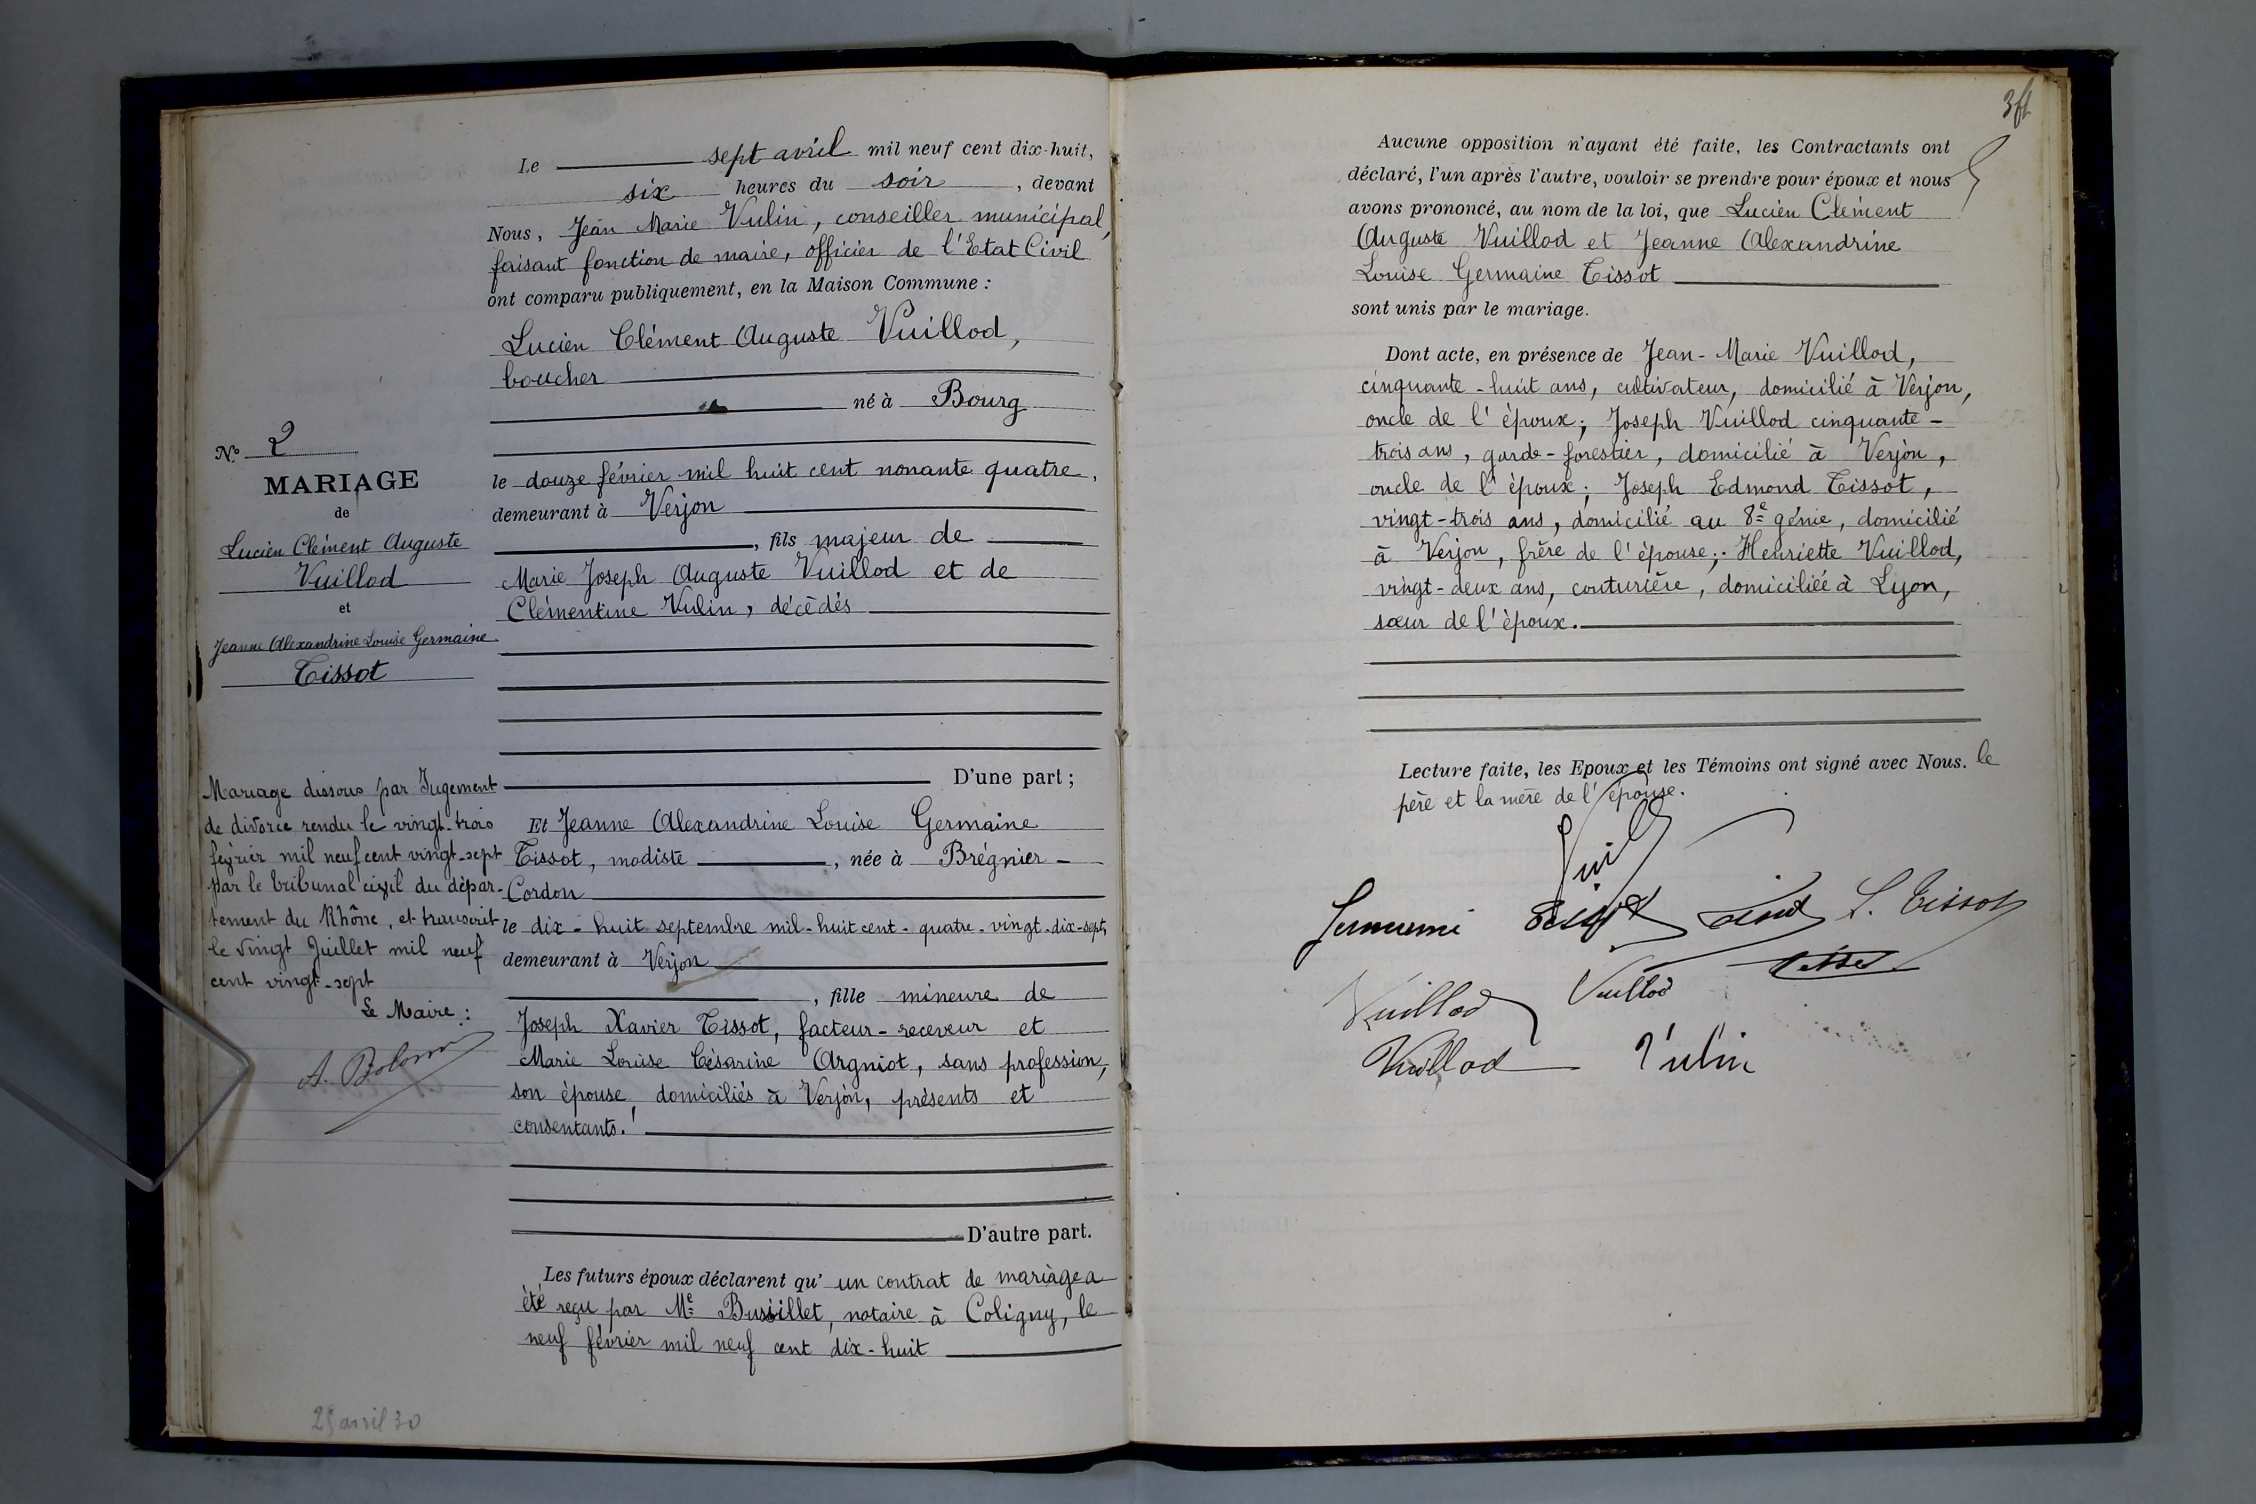 Le sept avril mil neuf cent dix-huit,
six heures du soir, devant
Nous, Jean Marie Vulin, conseiller municipal,
faisant fonction de maire, officier de l'Etat Civil
ont comparu publiquement, en la Maison Commune :
Lucien Clément Auguste Vuillod,
boucher
né à Bourg
le douze février mil huit cent nonante quatre,
demeurant à Verjon
, fils majeur de
Marie Joseph Auguste Vuillod et de
Clémentine Vulin, décédés
D'une part ;
Et Jeanne Alexandrine Louise Germaine
Tissot, modiste, née à Brégnier-
Cordon
le dix-huit septembre mil-huit cent-quatre-vingt-dix-sept,
demeurant à Verjon
, fille mineure de
Joseph Xavier Tissot, facteur-receveur et
Marie Louise Césarine Argniot, sans profession,
son épouse, domiciliés à Verjon, présents et
consentants.
D'autre part.
Les futurs époux déclarent qu'un contrat de mariage a
été reçu par Me Busillet, notaire à Coligny, le
neuf février mil neuf cent dix-huit
No 2
MARIAGE
de
Lucien Clément Auguste
Vuillod
et
Jeanne Alexandrine Louise Germaine
Tissot
Mariage dissous par Jugement
de divorce rendu le vingt-trois
février mil neuf cent vingt-sept
par le tribunal civil du dépar-
tement du Rhône, et transcrit
le vingt Juillet mil neuf
cent vingt-sept
Le Maire :
25 avril 30
Aucune opposition n'ayant été faite, les Contractants ont
déclaré, l'un après l'autre, vouloir se prendre pour époux et nous
avons prononcé, au nom de la loi, que Lucien Clément
Auguste Vuillod et Jeanne Alexandrine
Louise Germaine Tissot
sont unis par le mariage.
Dont acte, en présence de Jean-Marie Vuillod,
cinquante-huit ans, cultivateur, domicilié à Verjon,
oncle de l'époux; Joseph Vuillod cinquante-
trois ans, garde-forestier, domicilié à Verjon,
oncle de l'époux; Joseph Edmond Tissot,
vingt-trois ans, domicilié au 8e génie, domicilié
à Verjon, frère de l'épouse; Henriette Vuillod,
vingt-deux ans, couturière, domiciliée à Lyon,
sœur de l'époux.
Lecture faite, les Epoux et les Témoins ont signé avec Nous. le
père et la mère de l'épouse.
L. Tissot
Vuillod Vuillod
Vuillod Vulin